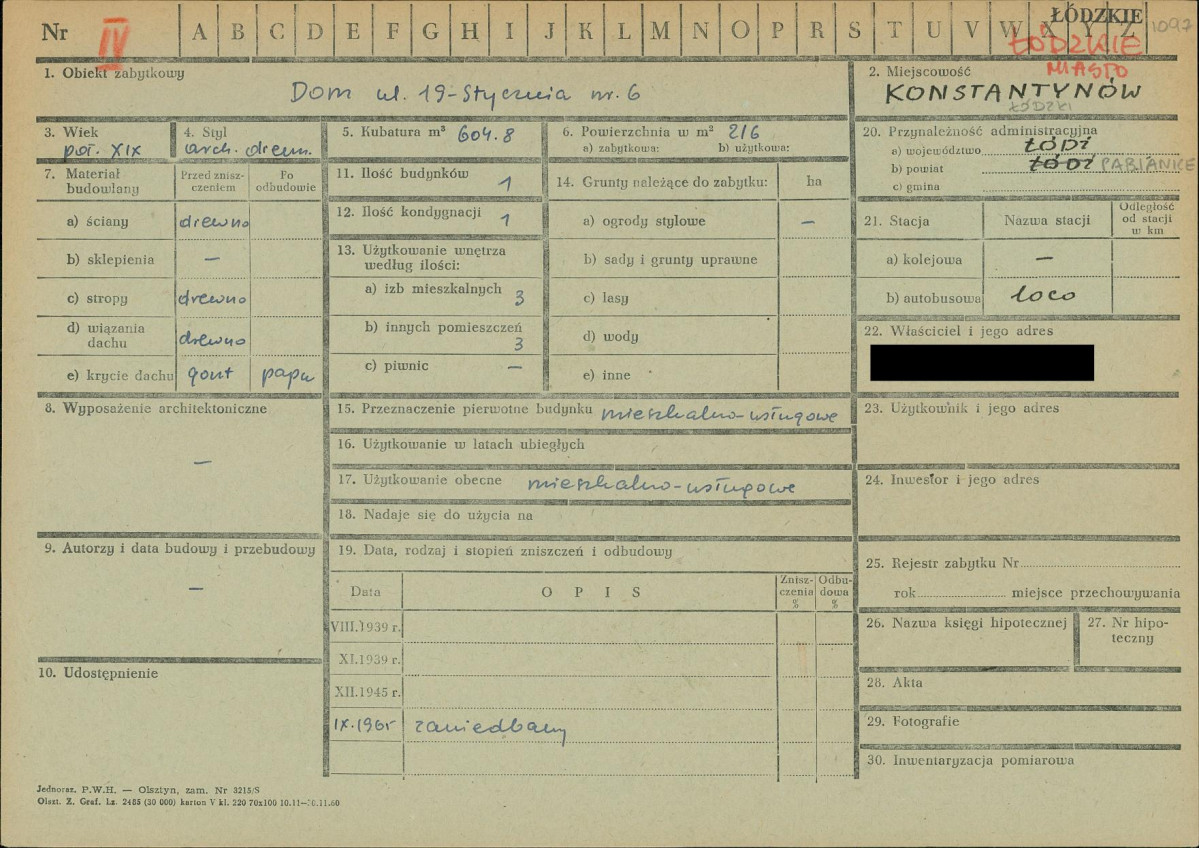 Nr IV A B C D E F G H I J K L M N O P R S T U V W X Y Z ŁÓDZKIE 1097
ŁÓDZKIE
MIASTO
1. Obiekt zabytkowy
Dom ul. 19-Stycznia nr. 6
2. Miejscowość
KONSTANTYNÓW
ŁÓDZKI
3. Wiek
poł. XIX
4. Styl
arch. drewn.
5. Kubatura m³ 604.8
6. Powierzchnia w m² 216
a) zabytkowa: b) użytkowa:
20. Przynależność administracyjna
a) województwo ŁÓDŹ
b) powiat ŁÓDŹ PABIANICE
c) gmina
7. Materiał budowlany
Przed znisz-
czeniem
Po
odbudowie
a) ściany drewno
b) sklepienia —
c) stropy drewno
d) wiązania
dachu drewno
e) krycie dachu gont papa
11. Ilość budynków 1
12. Ilość kondygnacji 1
13. Użytkowanie wnętrza
według ilości:
a) izb mieszkalnych 3
b) innych pomieszczeń
3
c) piwnic —
14. Grunty należące do zabytku: ha
a) ogrody stylowe —
b) sady i grunty uprawne
c) lasy
d) wody
e) inne
21. Stacja Nazwa stacji
Odległość
od stacji
w km
a) kolejowa —
b) autobusowa loco
22. Właściciel i jego adres
8. Wyposażenie architektoniczne
—
15. Przeznaczenie pierwotne budynku mieszkalno-usługowe
16. Użytkowanie w latach ubiegłych
17. Użytkowanie obecne mieszkalno-usługowe
18. Nadaje się do użycia na
23. Użytkownik i jego adres
24. Inwestor i jego adres
9. Autorzy i data budowy i przebudowy
—
10. Udostępnienie
19. Data, rodzaj i stopień zniszczeń i odbudowy
Data OPIS
Znisz-
czenia
%
Odbu-
dowa
%
VIII.1939 r.
XI.1939 r.
XII.1945 r.
IX.1965 zaniedbany
25. Rejestr zabytku Nr
rok miejsce przechowywania
26. Nazwa księgi hipotecznej
27. Nr hipo-
teczny
28. Akta
29. Fotografie
30. Inwentaryzacja pomiarowa
Jednoraz. P.W.H. — Olsztyn, zam. Nr 3215/S
Olszt. Z. Graf. Lz. 2485 (30 000) karton V kl. 220 70x100 10.11—30.11.60